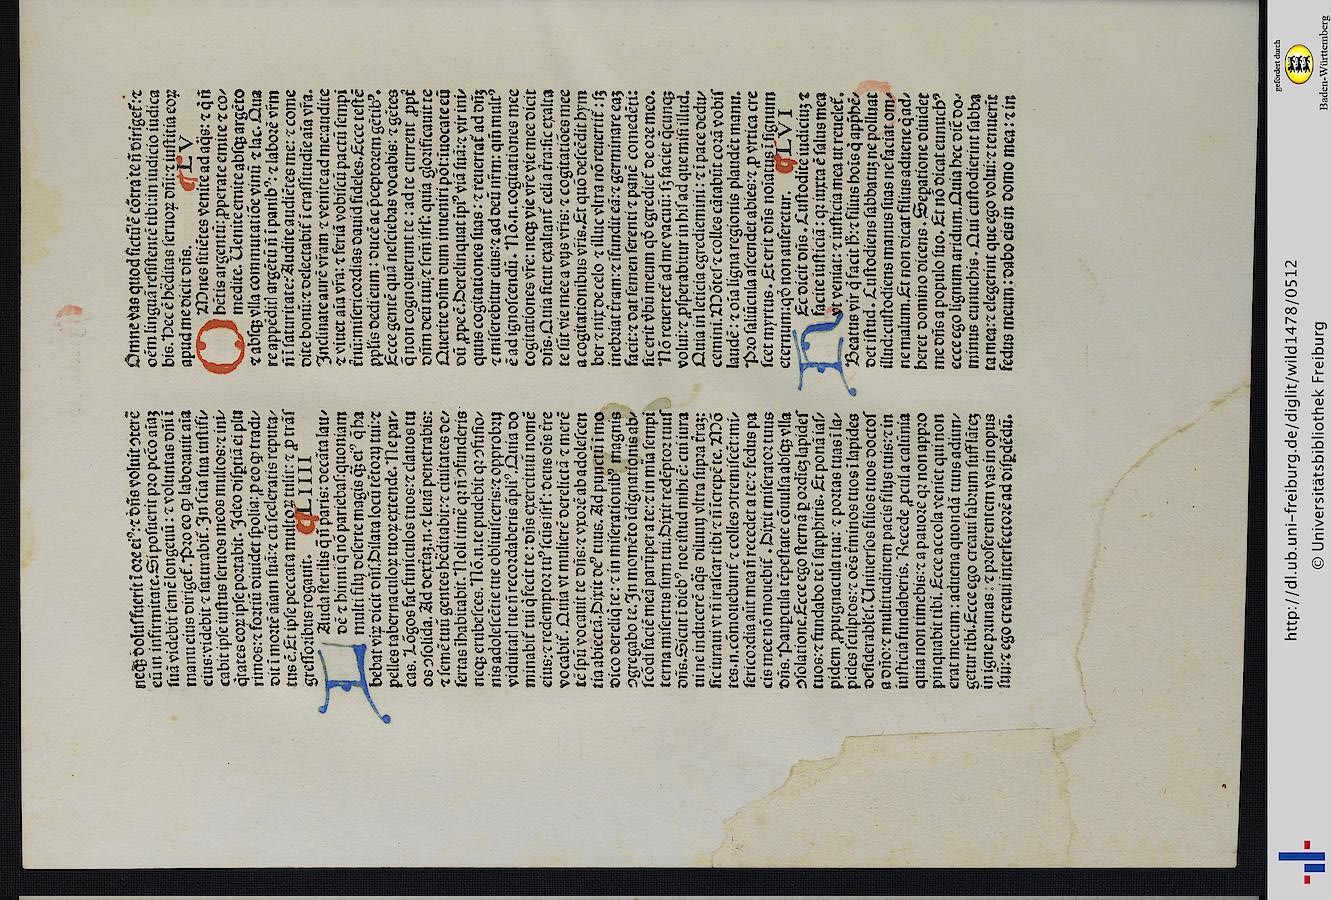 neqꝫ dolus fuerit ī ore eiꝰ: ⁊ dn̄s voluit ꝯterē
eū in infirmitate. Si posuerit pro pctō aīaꝫ
suā videbit semē longeuū: ⁊ voluntas dn̄i ī
manu eius diriget᷑. Pro eo ꝙ laborauit aīa
eius: videbit ⁊ saturabit᷑. In scīa sua iustifi⸗
cabit ipse iustus seruus meos multos: ⁊ ini⸗
q̄tates eoꝝ ipse portabit. Ideo disptiā ei plu
rimos: ⁊ fortiū diuidet spolia: ꝑ eo ꝙ tradi⸗
dit ī mortē aīam suā: ⁊ cū sceleratis reputa⸗
tus ē. Et ipse peccata multoꝝ tulit: ⁊ ꝑ trāſ
gressoribus rogauit. ¶ LIIII
LAuda sterilis q̄ nō paris: decāta lau⸗
dē ⁊ hinni q̄ nō pariebas quoniam
multi filij deserte magis qꝫ eiꝰ q̄ ha
bebat virꝫ dicit dn̄s. Dilata locū tētorij tui: ⁊
pelles tabernaculoꝝ tuoꝝ extende. Ne par⸗
cas. Lōgos fac funiculos tuos: ⁊ clauos tu
os ꝯsolida. Ad dextaꝫ.n.⁊ leuā penetrabis:
⁊ semē tuū gentes hēditabit: ⁊ ciuitates de⸗
sertas īhabitabit. Noli timē qꝛ nō ꝯfunderis
neqꝫ erubesces. Nō.n.te pudebit qꝛ ꝯfusio⸗
nis adolescētie tue obliuisceris: ⁊ opprobrij
viduitat᷑ tue nō recordaberis āpliꝰ. Quia do
minabit᷑ tui q̄ fecit te: dn̄s exercituū nomē
eius: ⁊ redemptor tuꝰ scūs isrl᷑: deus oīs t̄re
vocabit᷑. Quia vt mulierē derelictā ⁊ merē
tē spū vocauit te dn̄s: ⁊ vxorē ab adolescen
tia abiectā. Dixit deꝰ tuus. Ad punctū ī mo
dico dereliq̄ te: ⁊ in miserationibꝰ magnis
ꝯgregabo te. In momēto īdignationis ab⸗
scōdi faciē meā paruper a te: ⁊ in mīa sempi
terna misertus sum tui. Dixit redēptor tuus
dn̄s. Sicut ī diebꝰ noe istud mihi ē: cui iura
ui ne inducerē aq̄s diluuij vltra supra t̄raꝫ:
sic iuraui vt nō irascar tibi: ⁊ nō increpē te. Mō
tes.n.cōmouebunt᷑ ⁊ colles ꝯtremiscēt: mi⸗
sericordia aūt mea nō recedet a te: ⁊ fedus pa
cis mee nō mouebit᷑. Dixit miserator tuus
dn̄s. Paupcula tēpestate cōuulsa absqꝫ vlla
ꝯsolatione. Ecce ego sternā ꝑ ordieꝫ lapides
tuos: ⁊ fundabo te ī sapphiris. Et ponā ias⸗
pidem ꝓpugnacula tua: ⁊ portas tuas ī la⸗
pides sculptos: ⁊ oēs t̄minos tuos ī lapides
desiderabiles. Uniuersos filios tuos doctos
a dn̄o: ⁊ multitudinem pacis filijs tuis: ⁊ in
iusticia fundaberis. Recede ꝓcul a calūnia
quia non timebis: ⁊ a pauore qꝛ non appro
pinquabit tibi. Ecce accola veniet qui non
erat mecum: aduena quondā tuus adiun⸗
getur tibi. Ecce ego creaui fabrum sufflātē
in igne prunas: ⁊ proferentem vas in opus
suū: ⁊ ego creaui interfectorē ad disp̄dēdū.
Omne vas quod fictū ē cōtra te nō diriget᷑: ⁊
oēm linguā resistentē tibi in iudicio iudica
bis. Hec ē hēditas seruoꝝ dn̄i: ⁊ iustitia eoꝝ
apud me dicit dn̄s. ¶ LV
OMnes sitiētes venite ad aq̄s: ⁊ qui nō
habētis argentū: properate emite ⁊ co⸗
medite. Uenite emite absqꝫ argēto
⁊ absqꝫ vlla commutatiōe vinū ⁊ lac. Qua
re appēditꝭ argētū nō ī panibꝰ: ⁊ laborē vrm̄
nō ī saturitate? Audite audiētes me: ⁊ come
dite bonū: ⁊ delectabit᷑ ī crassitudie aīa vr̄a.
Inclinate aurē vr̄am ⁊ venite ad me: audite
⁊ viuet aīa vr̄a: ⁊ feriā vobiscū pactū sempi
t̄nū misericordias dauid fideles. Ecce testē
pplīs dedi eum: ducē ac p̄ceptorem gētibꝰ.
Ecce gentē quā nesciebas vocabis: ⁊ gētes
q̄ non cognouerunt te: ad te current ꝓpt᷑
dn̄m deū tuū, ⁊ scm̄ isrl᷑: quia glorificauit te
Querite dn̄m dum inueniri pōt: īuocate eū
dū ꝓpe ē. Derelinquat ipīꝰ viā suā: ⁊ vir ini⸗
quus cogitationes suas: ⁊ reuertat᷑ ad dn̄ꝫ
⁊ miserebitur eius: ⁊ ad deū nr̄m: qm̄ multꝰ
ē ad ignoscendū. Nō.n.cogitationes mee
cogitationes vr̄e: neqꝫ vie vr̄e vie mee dicit
dn̄s. Quia sicut exaltant᷑ celi a t̄ra: sic exalta
te sūt vie mee a vijs vr̄is: ⁊ cogitatiōes mee
a cogitationibus vr̄is. Et quō descēdit hym
ber ⁊ nix de celo ⁊ illuc vltra nō reuertit᷑: sꝫ
inebriat t̄ram: ⁊ īfundit eā: ⁊ germinare eaꝫ
facit: ⁊ dat semen serenti ⁊ panē comedēti:
sic erit vbū meum qd̓ egrediet᷑ de ore meo.
Nō reuertet᷑ ad me vacuū: sꝫ faciet q̄cunqꝫ
volui: ⁊ ꝓsperabitur in his ad que misi illud.
Quia in leticia egrediemini: ⁊ ī pace dedu⸗
cemini. Mōtes ⁊ colles cātabūt corā vobis
laudē: ⁊ oīa ligna regionis plaudēt manu.
Pro saliūca ascendet abies: ⁊ ꝓ vrtica cre
scet myrtus. Et erit dn̄s noīatus ī signum
eternum: qd̓ non auferetur. ¶ LVI
HEc dicit dn̄s. Custodite iudiciuꝫ ⁊
facite iusticiā: qꝛ iuxta ē salus mea
vt veniat: ⁊ iusticia mea vt reuelet᷑.
Beatus vir q̄ facit h̄: ⁊ filius hoīs q̄ appħē⸗
det istud. Custodiens sabbatuꝫ ne polluat
illud: custodiens manus suas ne faciat om⸗
ne malum. Et non dicat filius aduene q̄ ad⸗
heret dn̄o dicens. Separatione diuidet
me dn̄s a populo suo. Et nō dicat eunuchꝰ
ecce ego lignum aridum. Quia hec dic̄ do⸗
minus eunuchis. Qui custodierint sabba
ta mea: ⁊ elegerint que ego volui: ⁊ tenuerit
fedus meum: dabo eis in domo mea: ⁊ in
http://dl.ub.uni-freiburg.de/diglit/wild1478/0512
© Universitätsbibliothek Freiburg
gefördert durch
Baden-Württemberg